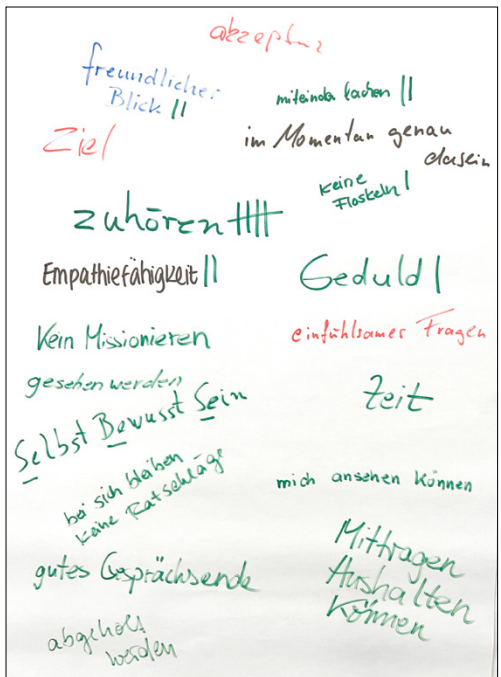 akzeptanz
freundlicher
Blick ||
miteinander lachen ||
Ziel
im Momentan genau
dasein
keine
Floskeln |
zuhören ||||
Empathiefähigkeit ||
Geduld |
Kein Missionieren
einfühlsames Fragen
gesehen werden
Zeit
Selbst Bewusst Sein
bei sich bleiben
keine Ratschläge
mich ansehen können
Mittragen
Aushalten
Können
gutes Gesprächsende
abgeholt
werden